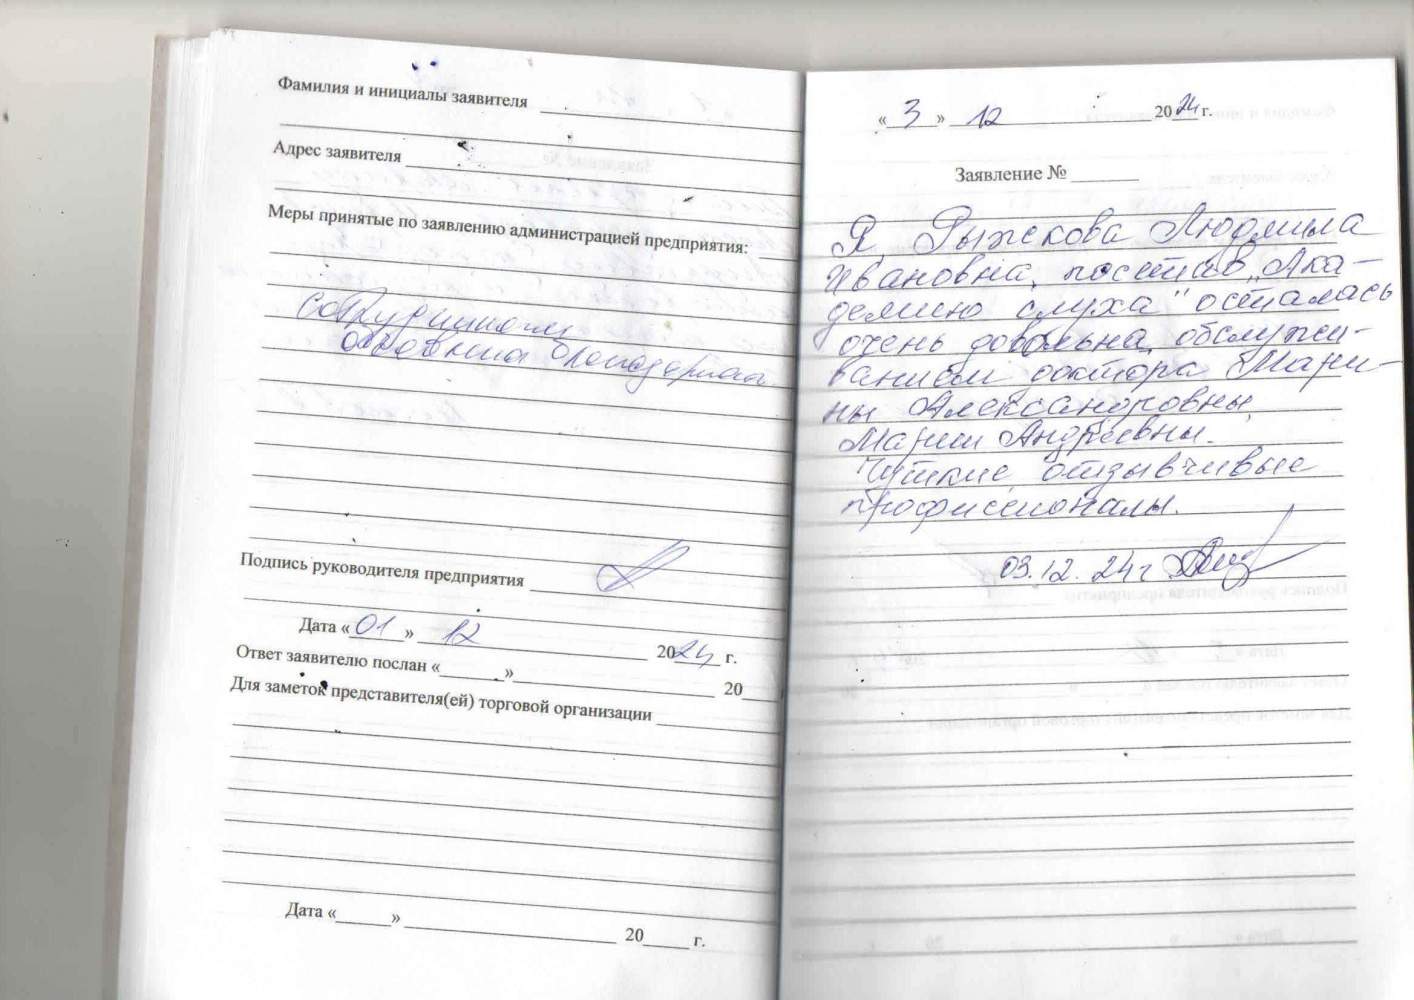 Фамилия и инициалы заявителя
Адрес заявителя
Меры принятые по заявлению администрацией предприятия:
сотруднику
объявлена благодарность
Подпись руководителя предприятия
Дата «01» 12 2024 г.
Ответ заявителю послан «______»______ 20____
Для заметок представителя(ей) торговой организации
Дата «______» ______ 20_____ г.
«3» 12 2024 г.
Заявление № _______
Я Рыжкова Людмила
Ивановна, посетив „Ака-
демию слуха" осталась
очень довольна обслужи-
ванием доктора Мари-
ны Александровны,
Марии Андреевны.
Чуткие, отзывчивые
профессионалы.
03.12.24 г